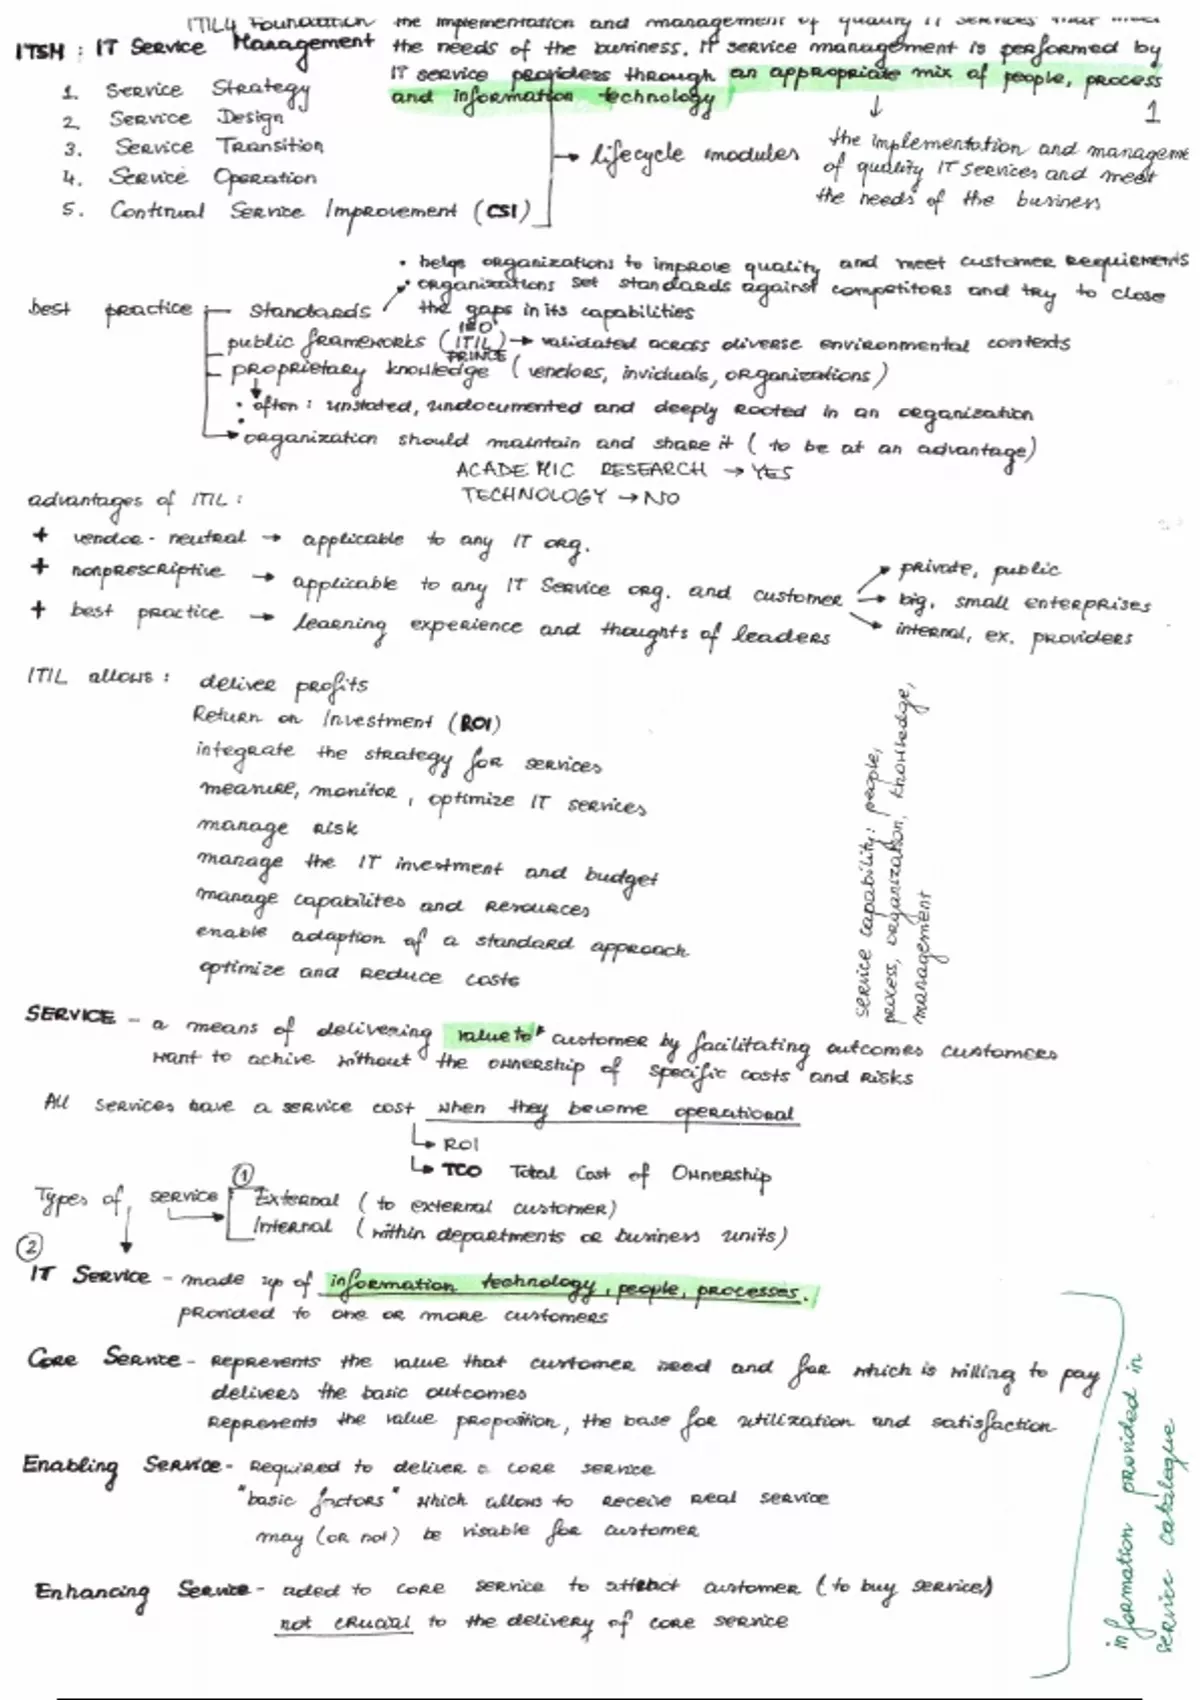 ITIL4 Foundation
the implementation and management of quality IT services that meet
ITSM : IT Service Management
the needs of the business. IT service management is performed by
IT service providers through an appropriate mix of people, process
and information technology
1
1. Service Strategy
2. Service Design
3. Service Transition
4. Service Operation
5. Continual Service Improvement (CSI)
lifecycle modules
the implementation and manageme
of quality IT services and meet
the needs of the business
• helps organizations to improve quality and meet customer requirements
• organizations set standards against competitors and try to close
the gaps in its capabilities
best practice
standards
ISO
public frameworks (ITIL) → validated across diverse environmental contexts
PRINCE
proprietary knowledge (vendors, inviduals, organizations)
• often : unstated, undocumented and deeply rooted in an organization
• organization should maintain and share it (to be at an advantage)
ACADEMIC RESEARCH → YES
TECHNOLOGY → NO
advantages of ITIL :
+ vendor-neutral → applicable to any IT org.
+ nonprescriptive → applicable to any IT Service org. and customer
→ private, public
→ big, small enterprises
→ internal, ex. providers
+ best practice → learning experience and thoughts of leaders
ITIL allows :
deliver profits
Return on Investment (ROI)
integrate the strategy for services
measure, monitor, optimize IT services
manage risk
manage the IT investment and budget
manage capabilites and resources
enable adaption of a standard approach
optimize and reduce costs
service capability: people,
process, organization, knowledge,
management
SERVICE - a means of delivering value to customer by facilitating outcomes customers
want to achive without the ownership of specific costs and risks
All services have a service cost when they become operational
→ ROI
→ TCO Total Cost of Ownership
①
Types of service
External (to external customer)
Internal (within departments or business units)
②
IT Service - made up of information technology, people, processes.
provided to one or more customers
Core Service - represents the value that customer need and for which is willing to pay
delivers the basic outcomes
represents the value proposition, the base for utilization and satisfaction
Enabling Service - required to deliver a core service
"basic factors" which allows to receive real service
may (or not) be visable for customer
Enhancing Service - aded to core service to attract customer (to buy services)
not crucial to the delivery of core service
information provided in
service catalogue